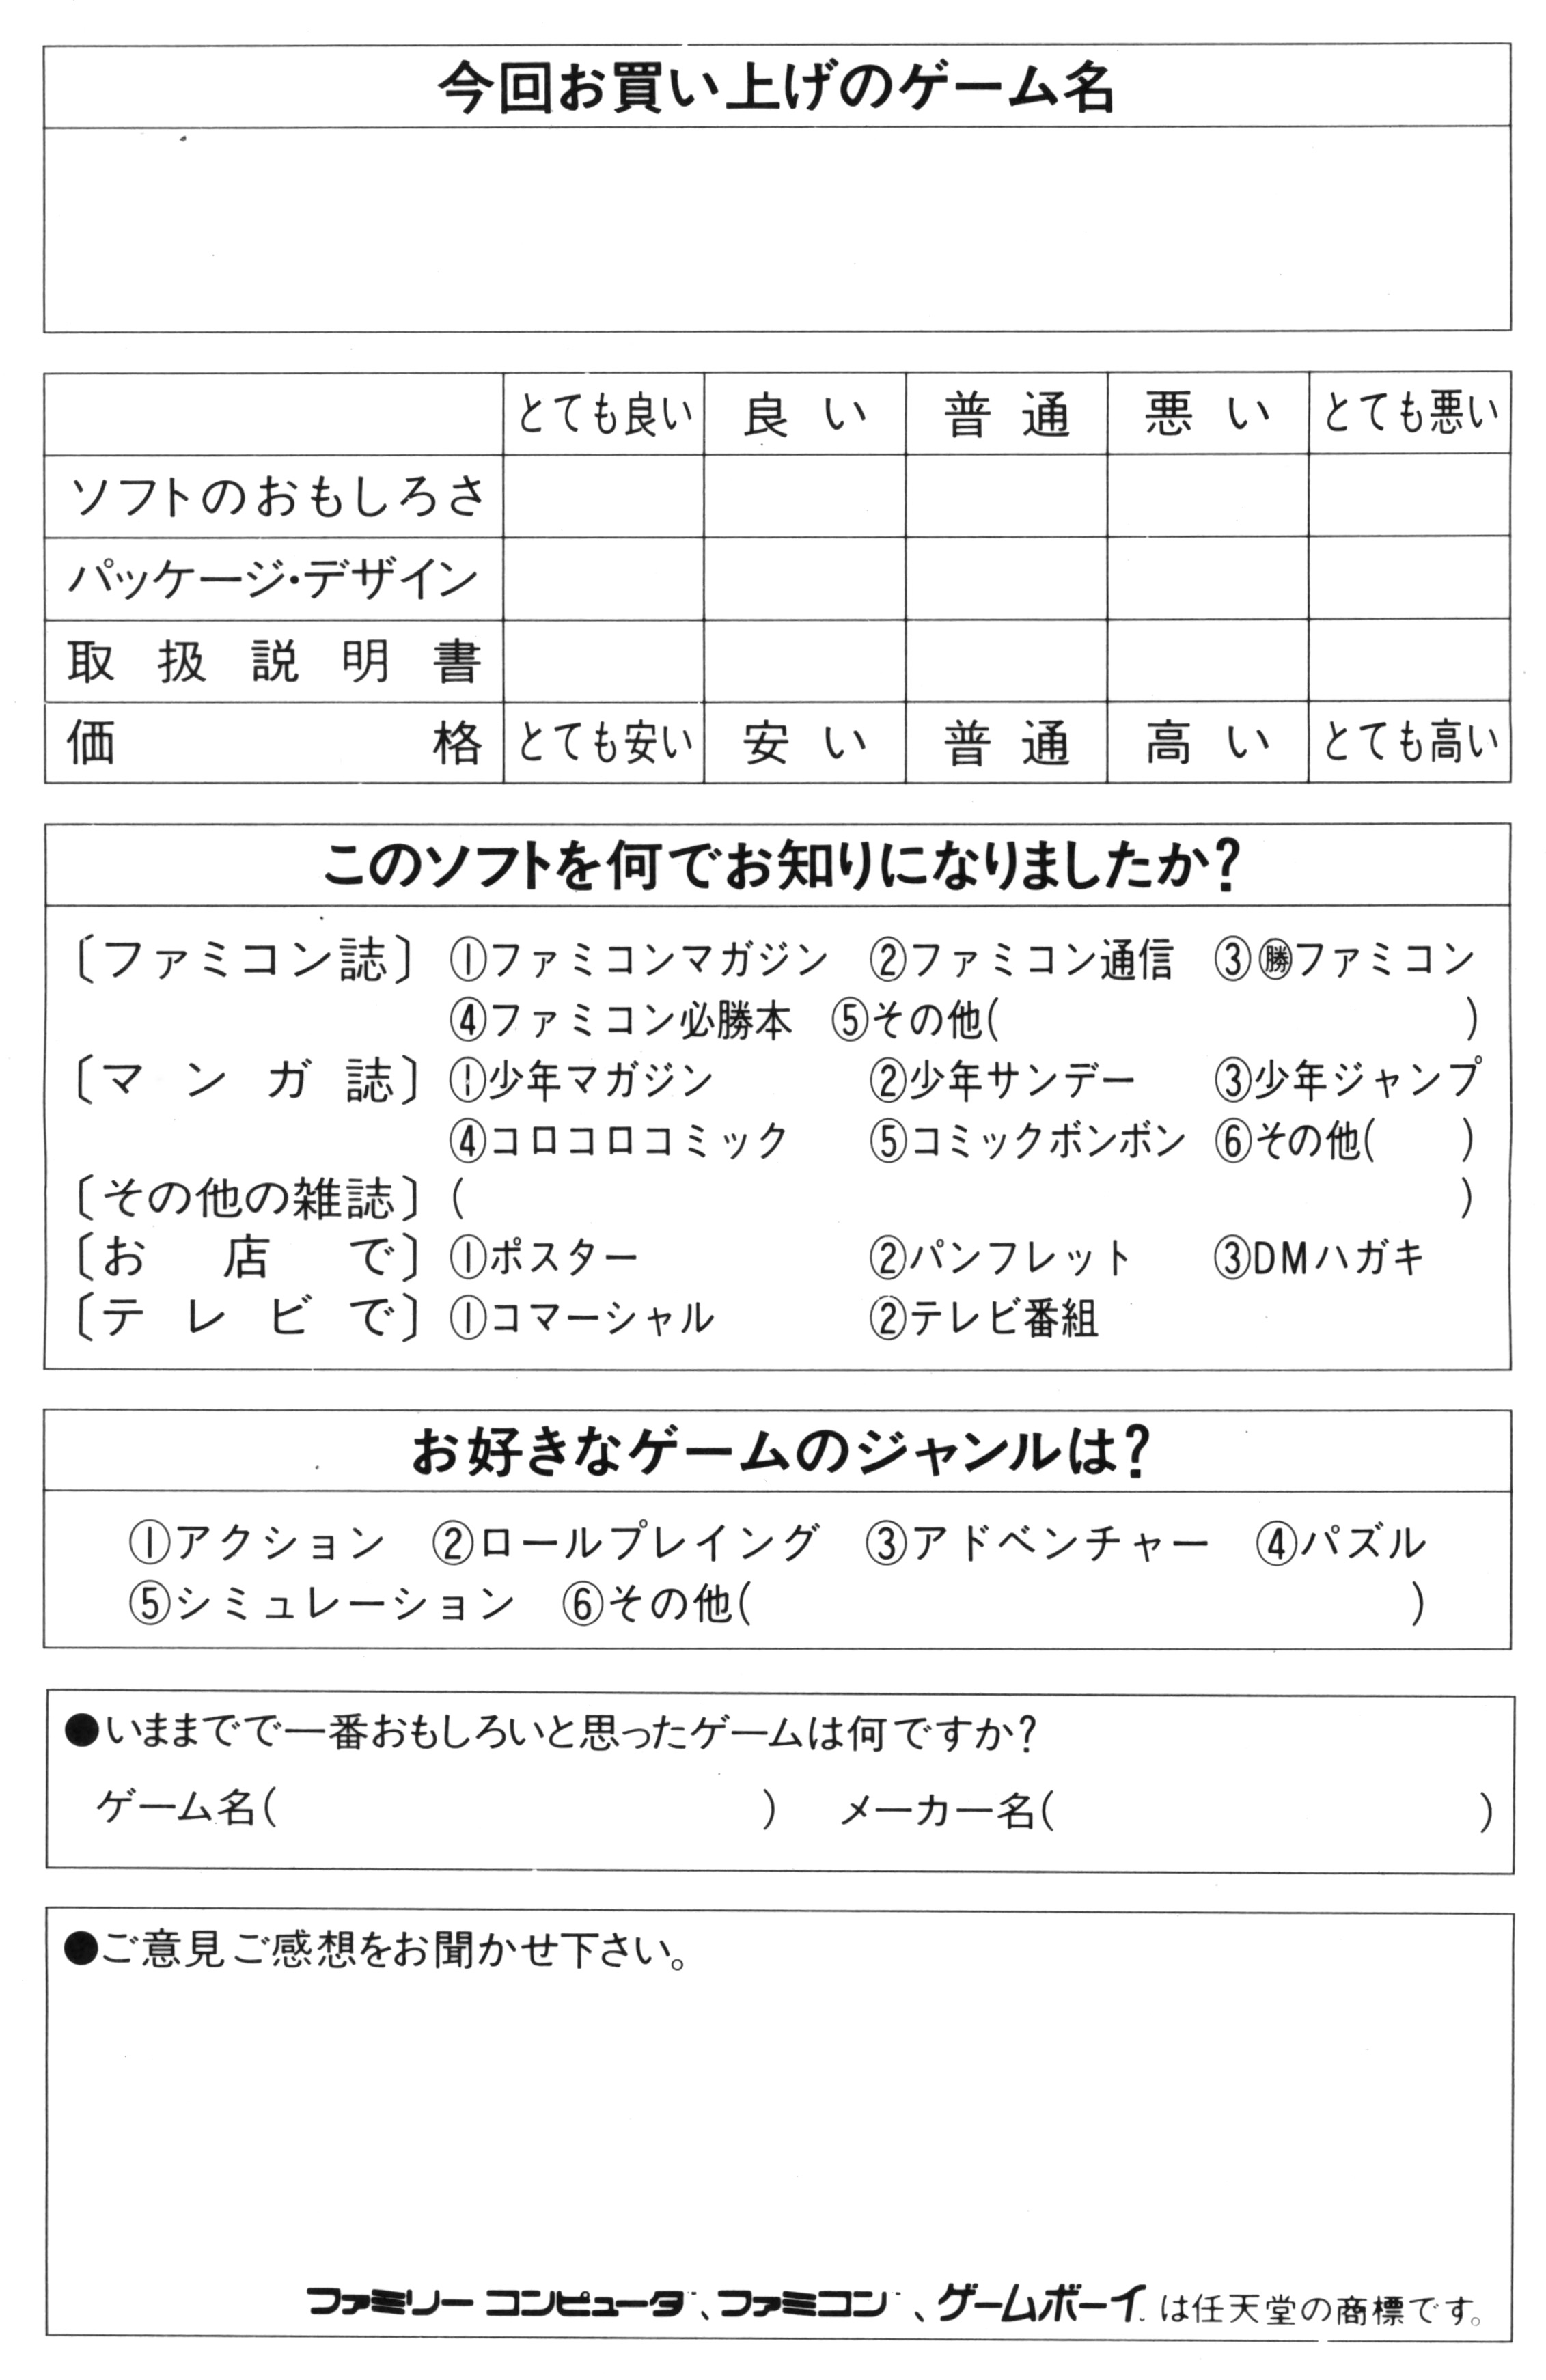 今回お買い上げのゲーム名
とても良い 良い 普通 悪い とても悪い
ソフトのおもしろさ
パッケージ・デザイン
取扱説明書
価格 とても安い 安い 普通 高い とても高い
このソフトを何でお知りになりましたか?
〔ファミコン誌〕 ①ファミコンマガジン ②ファミコン通信 ③㊙ファミコン
④ファミコン必勝本 ⑤その他( )
〔マンガ誌〕 ①少年マガジン ②少年サンデー ③少年ジャンプ
④コロコロコミック ⑤コミックボンボン ⑥その他( )
〔その他の雑誌〕 ( )
〔お店で〕 ①ポスター ②パンフレット ③DMハガキ
〔テレビで〕 ①コマーシャル ②テレビ番組
お好きなゲームのジャンルは?
①アクション ②ロールプレイング ③アドベンチャー ④パズル
⑤シミュレーション ⑥その他( )
●いままでで一番おもしろいと思ったゲームは何ですか?
ゲーム名( ) メーカー名( )
●ご意見ご感想をお聞かせ下さい。
ファミリーコンピュータ、ファミコン、ゲームボーイは任天堂の商標です。